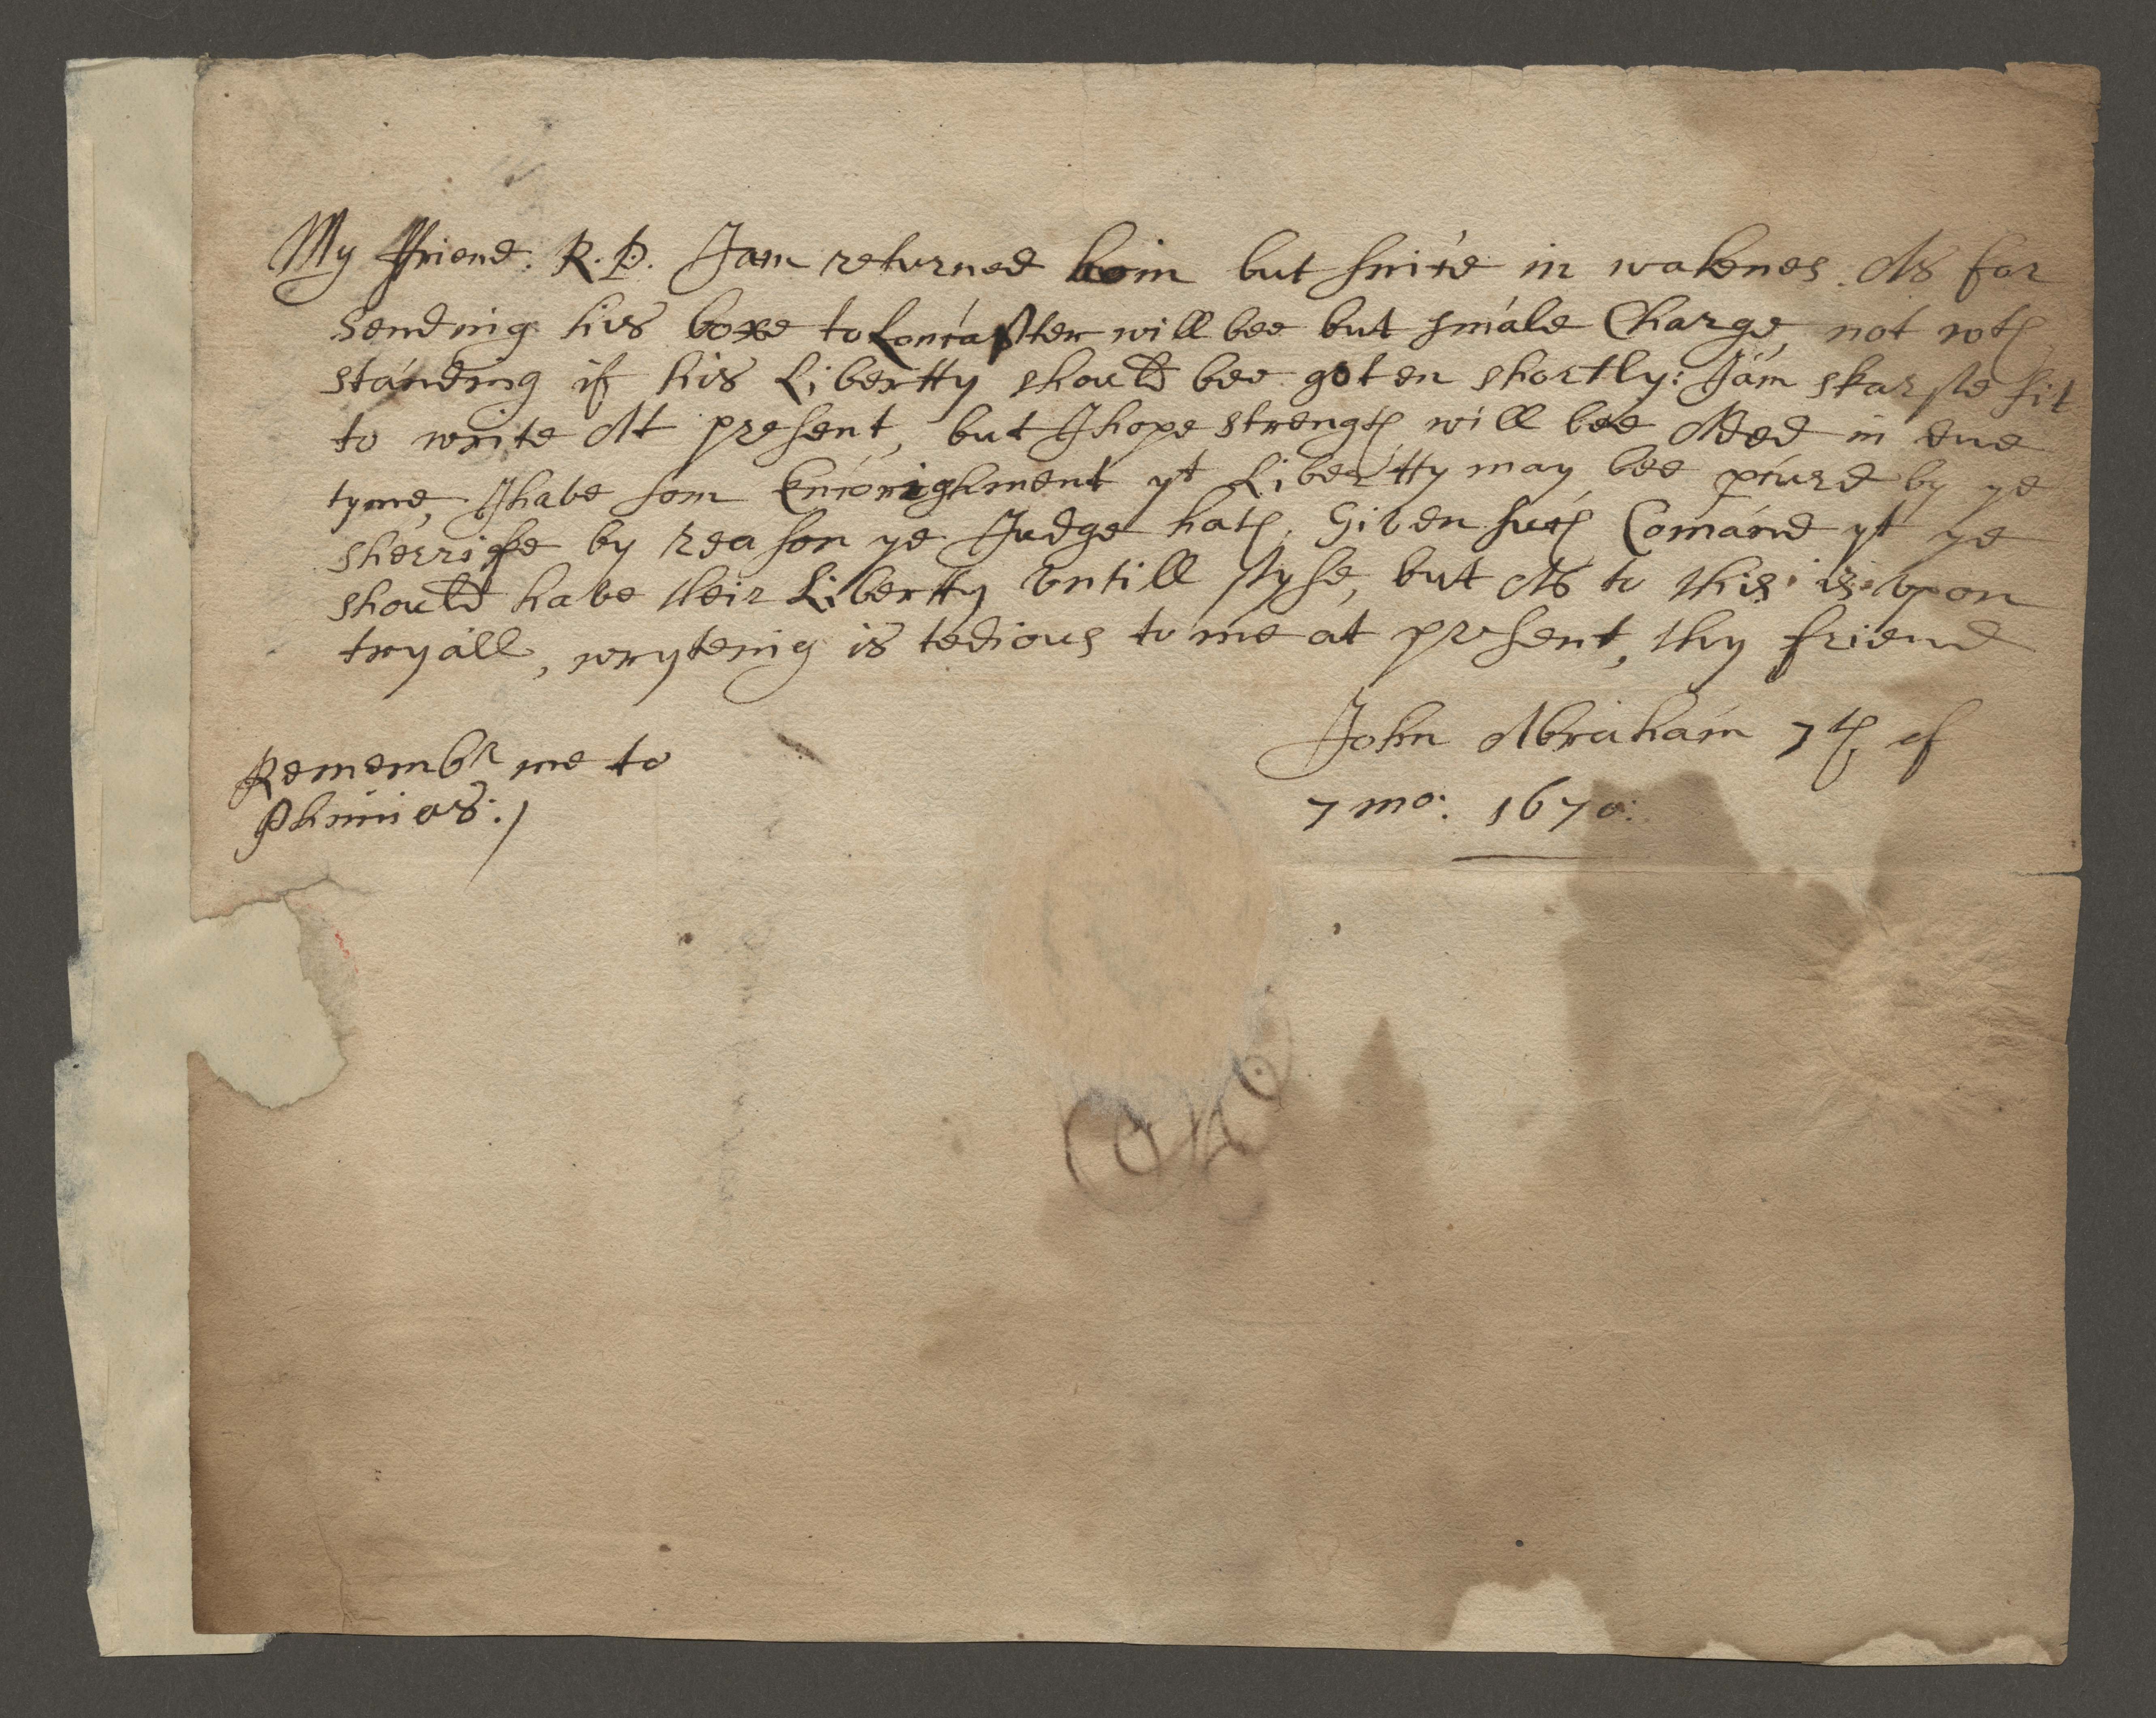 My ffriend. R. P. I am returned hom but since in wakenes. As for
sending his boxe to Loncaster will bee but smale Charge, not wth
standing if his Libertty should bee goten shortly: I am skarse fit
to write At present, but I hope strength will bee Aded in due
tyme, I have som Encorighment yt Libertty may bee pcurd by ye
sherrife by reason ye Judge hath Given such Comand yt ye
should have their Libertty vntill syse, but As to this is vpon
tryall, wryteing is tedious to me at present, thy friend
John Abraham 7th of
7 mo: 1670:
Remembr me to
Phinias: